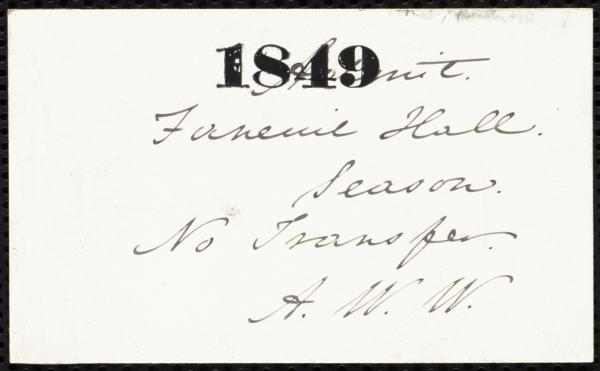 1849
Admit.
Faneuil Hall.
Season.
No Transfer.
A. W. W.